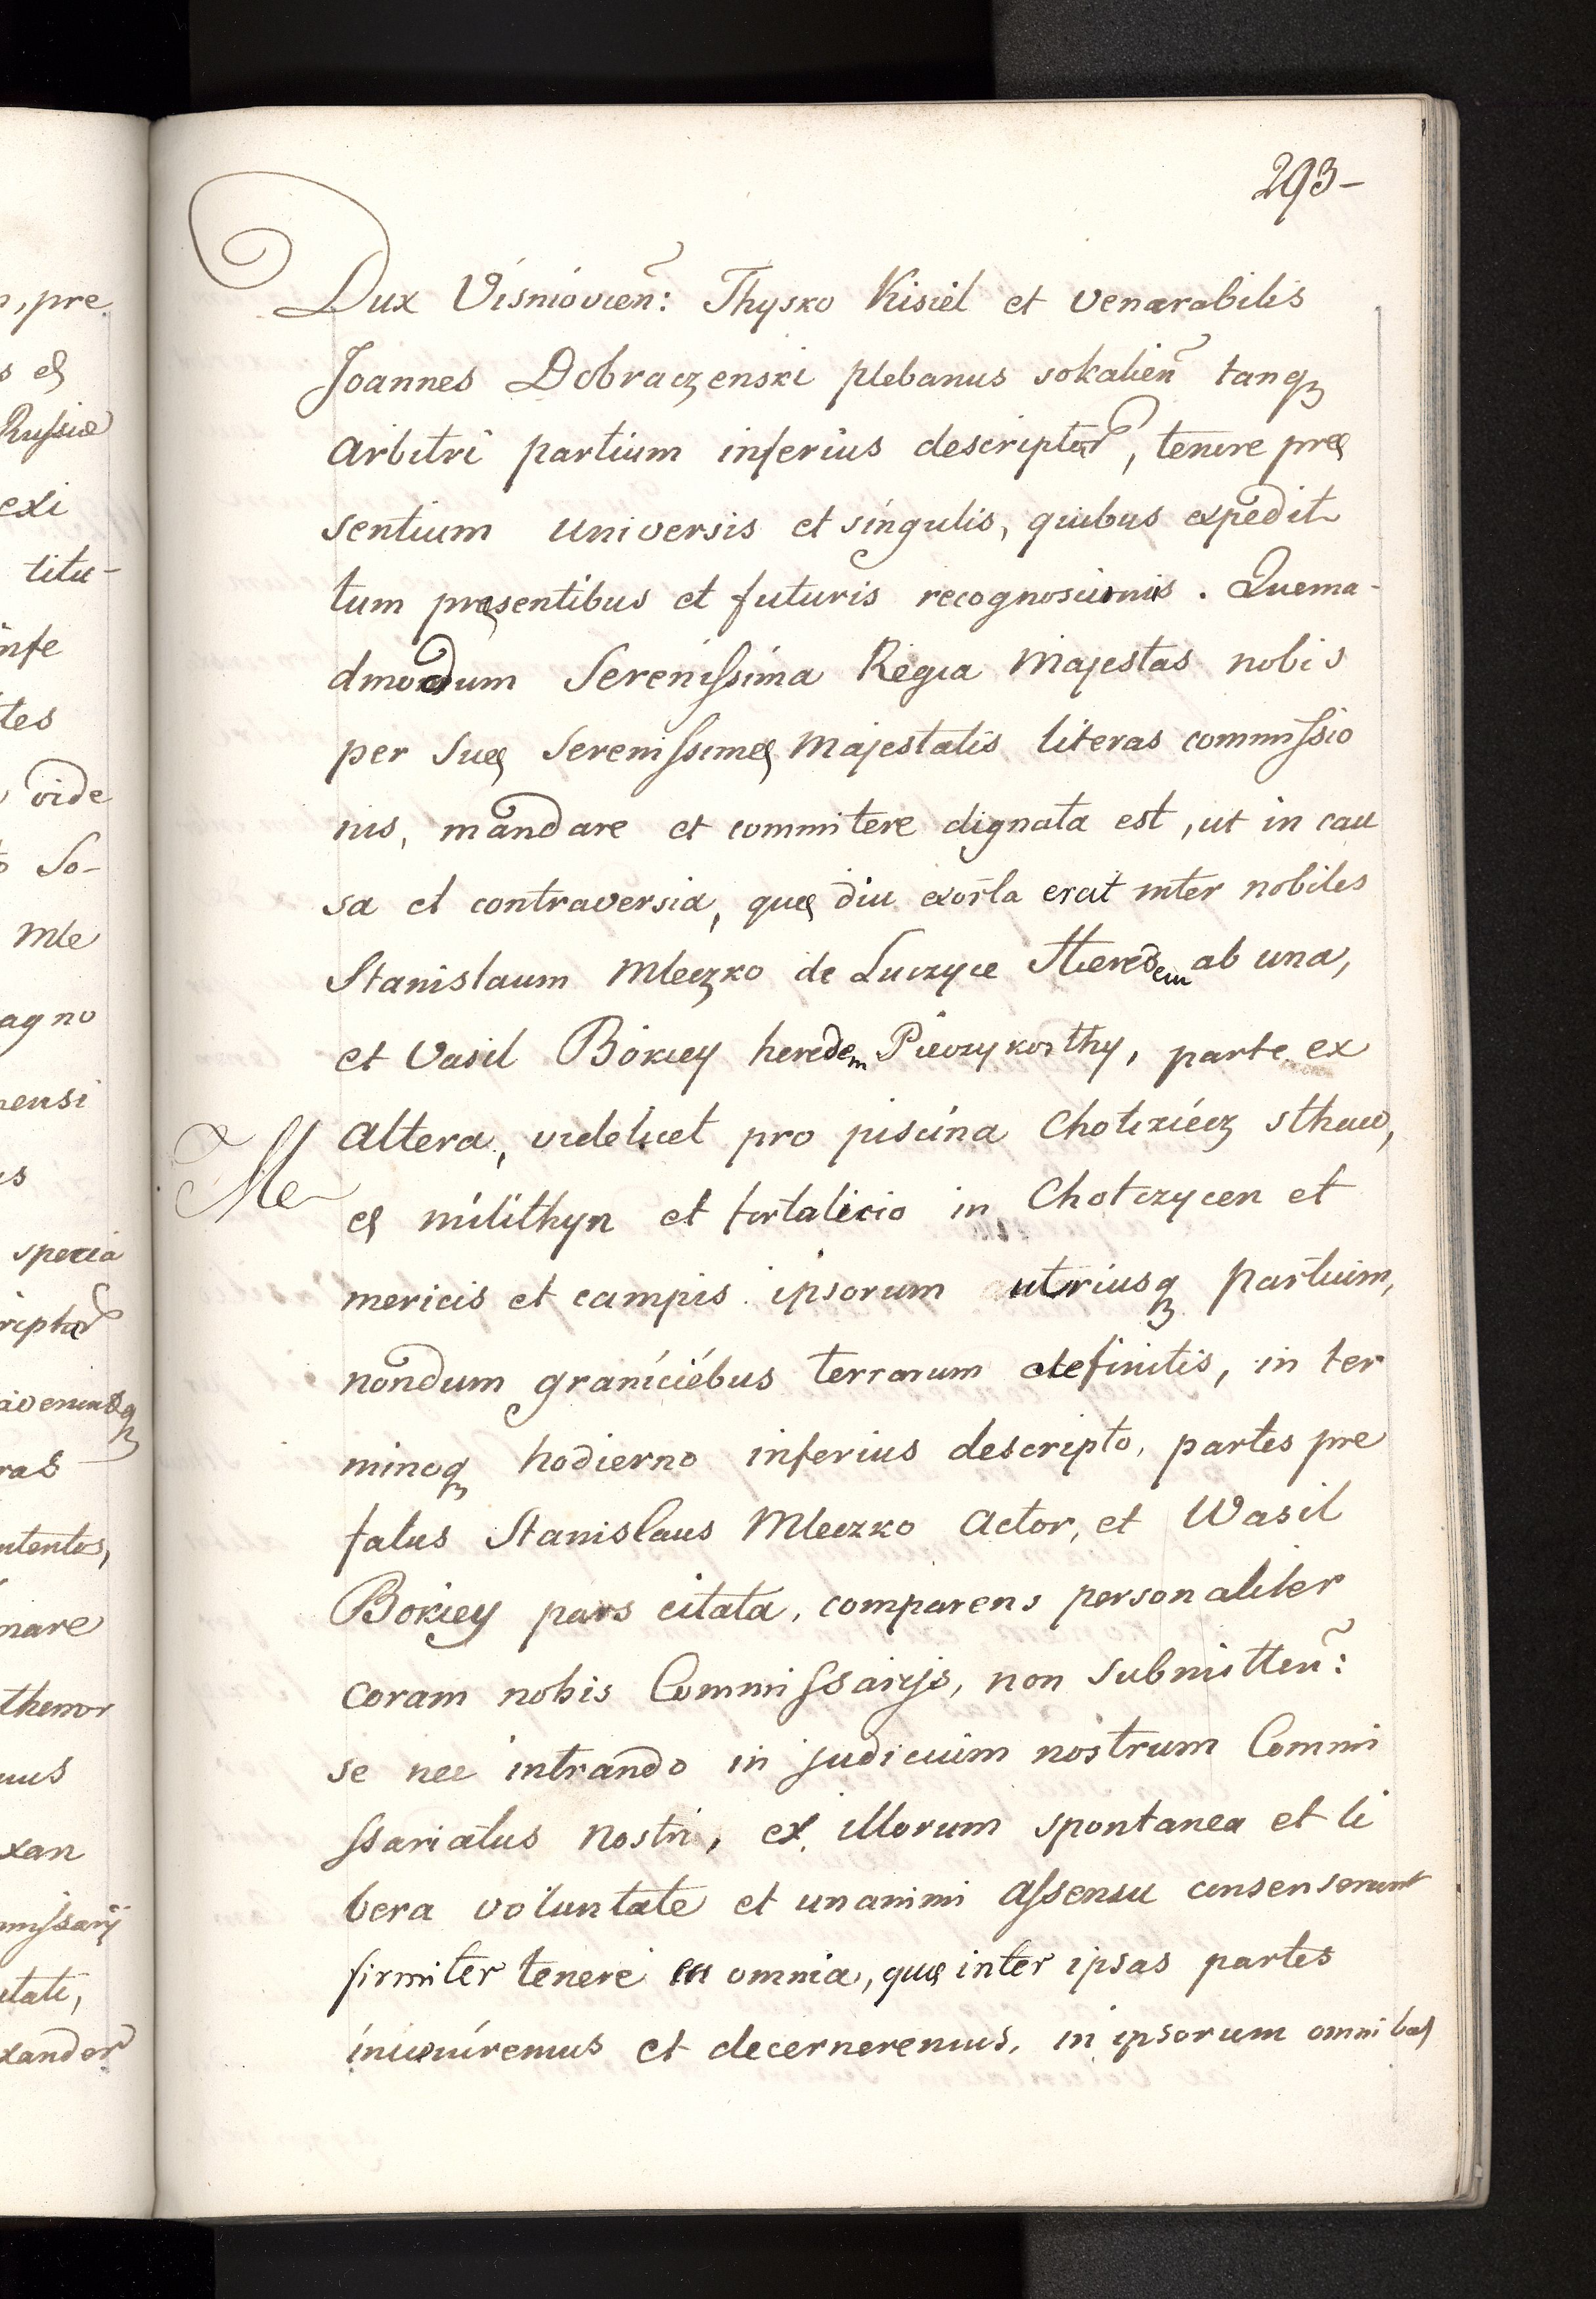 293-
Dux Visniovien̄: Thysko Kisiel et venarabilis
Joannes Dobraczenski plebanus sokalien̄ tanqʒ
arbitri partium inferius descriptar, tenore pręsentium universis et singulis, quibus expedit
tum pręsentibus et futuris recognoscimus. Quema-
dmodum Serenissima Regia Majestas nobis
per suę Serenissimę Majestatis literas commissio
nis, mandare et commitere dignata est, ut in cau
sa et contraversia, quę diu exorta erat inter nobiles
Stanislaum Mleczko de Luczyce Heredem ab una,
et Vasil Bokiey heredem Pieczykorthy, parte ex
altera, videlicet pro piscina Chotcziecz sthaw,
Me
ę milithyn et fortalicio in Chotczycen et
mericis et campis ipsorum utriusqʒ partium,
nondum graniciebus terrarum definitis, in ter
minoqʒ hodierno inferius descripto, partes pre
fatus Stanislaus Mleczko Actor, et Wasil
Bokiey pars citata, comparens personaliter
coram nobis Commissarijs, non submitten̄:
se nec intrando in judicium nostrum Commi
ssariatus nostri, ex illorum spontanea et li
bera voluntate et unanimi assensu consenserunt
firmiter tenere omnia, quę inter ipsas partes
et decerneremus, in ipsorum omnibus